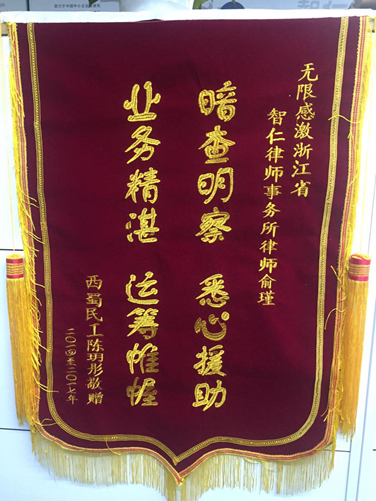 无限感激浙江省
智仁律师事务所律师俞瑾
暗查明察 悉心援助
业务精湛 运筹帷幄
西蜀民工陈玥彤敬赠
二〇一四年至二〇一七年